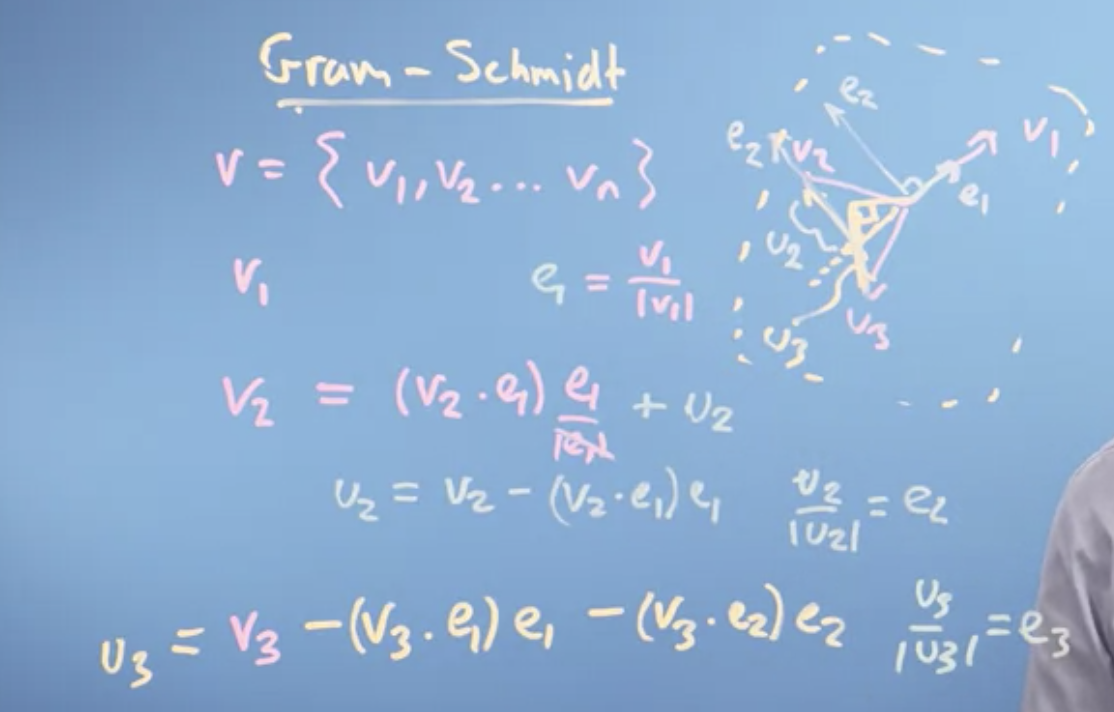 Gram - Schmidt
V = { v₁, v₂ ... vₙ }
v₁    e₁ = v₁/|v₁|
v₂ = (v₂ · e₁) e₁/|e₁| + u₂
u₂ = v₂ - (v₂ · e₁) e₁    u₂/|u₂| = e₂
u₃ = v₃ - (v₃ · e₁) e₁ - (v₃ · e₂) e₂    u₃/|u₃| = e₃
e₂
e₂ v₂
v₁
e₁
u₂
u₃
v₃